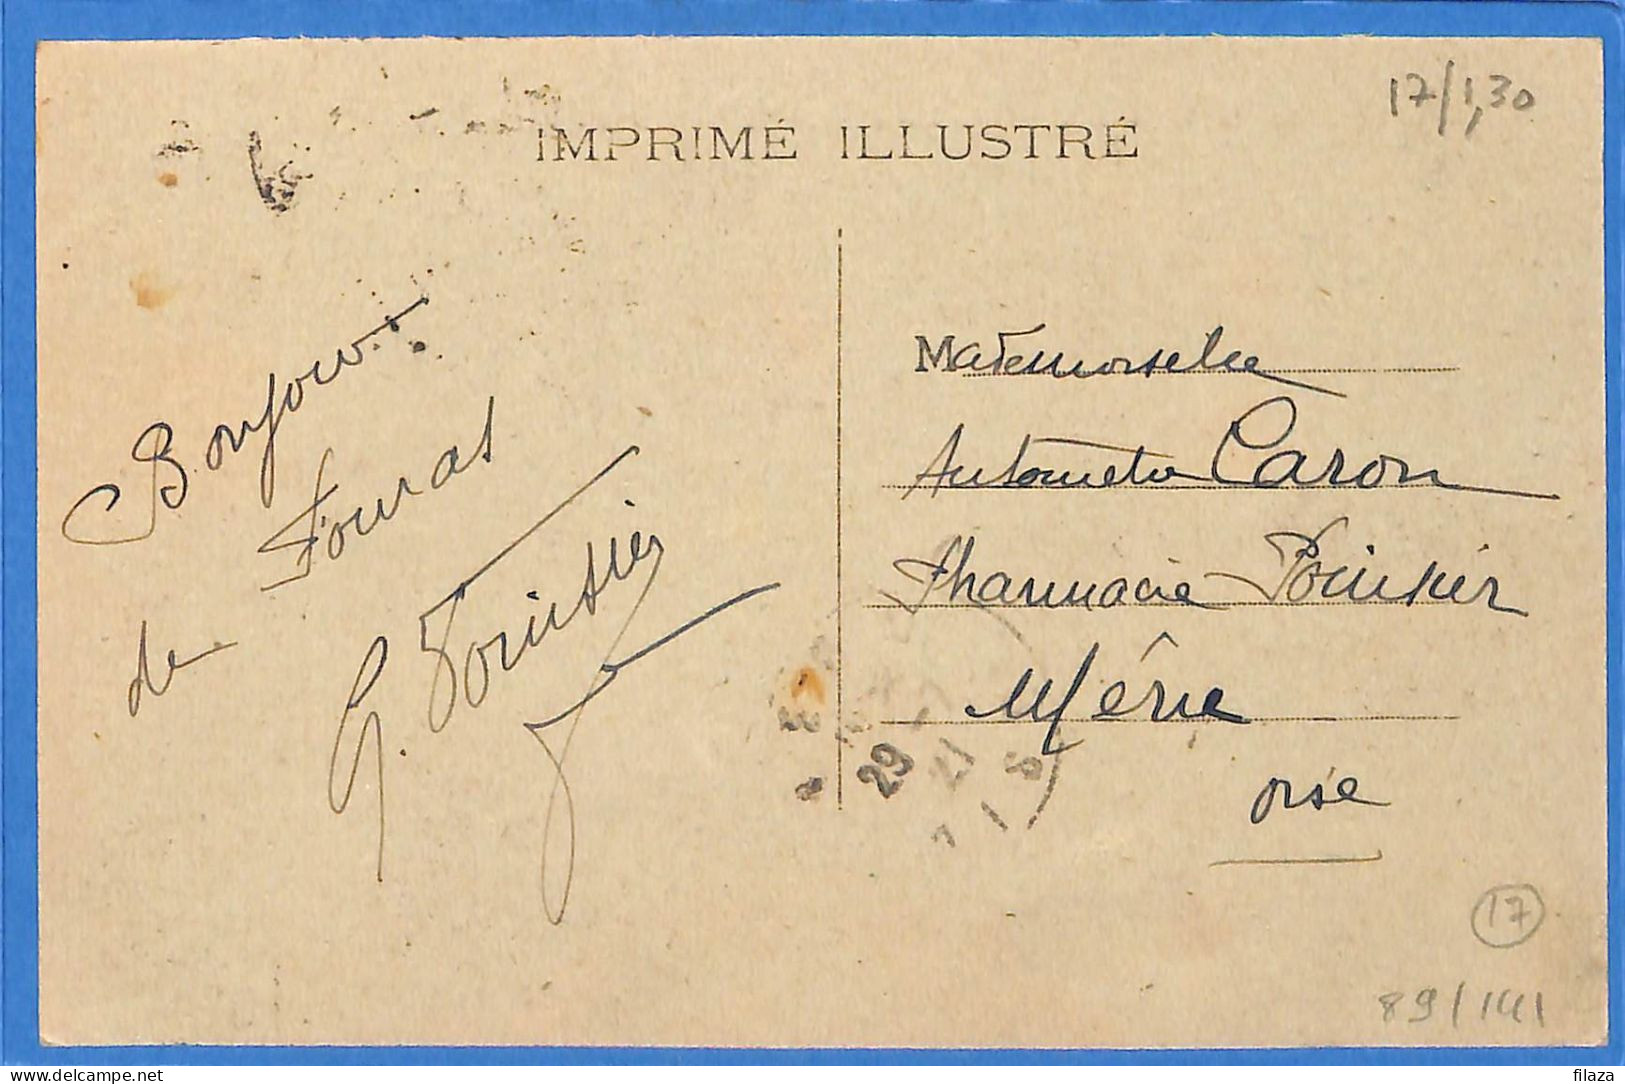 17/1,30
IMPRIMÉ ILLUSTRÉ
Bonjour
de Fouras
G. Poinsier
Mademoiselle
Antoinette Caron
Pharmacie Poinsier
Méru
Oise
29
17
89/141
delcampe.net
filaza